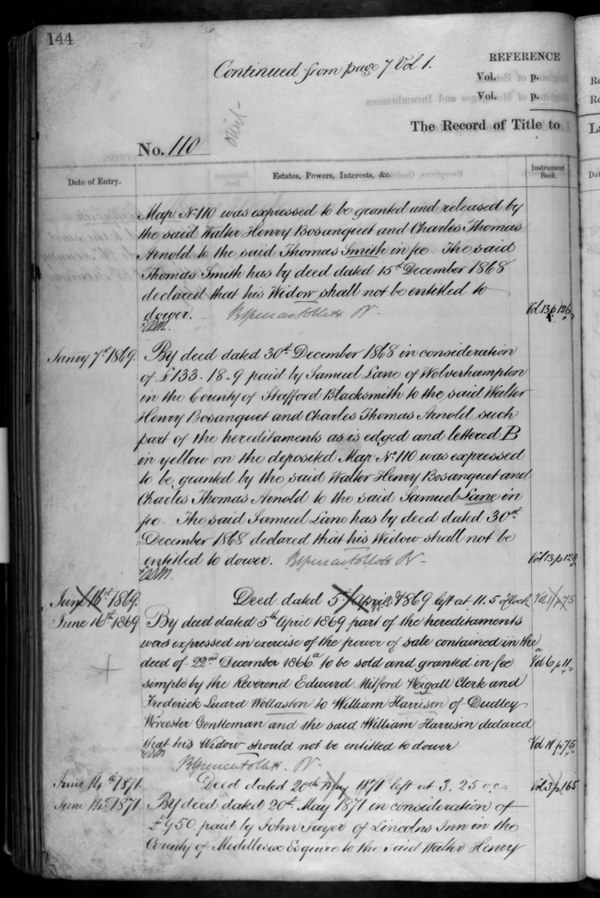 144
Continued from page 7 Vol 1.
REFERENCE
Vol. p.
Vol. p.
The Record of Title to
No. 110
Date of Entry.
Estates, Powers, Interests, &c.
Instrument Book.
Map No 110 was expressed to be granted and released by
the said Walter Henry Bosanquet and Charles Thomas
Arnold to the said Thomas Smith in fee The said
Thomas Smith has by deed dated 15th December 1868
declared that his Widow shall not be entitled to
dower. Vol 13 p 126
Janry 7th 1869. By deed dated 30th December 1868 in consideration
of £133-18-9 paid by Samuel Lane of Wolverhampton
in the County of Stafford Blacksmith to the said Walter
Henry Bosanquet and Charles Thomas Arnold such
part of the hereditaments as is edged and lettered B
in yellow on the deposited Map No 110 was expressed
to be granted by the said Walter Henry Bosanquet and
Charles Thomas Arnold to the said Samuel Lane in
fee. The said Samuel Lane has by deed dated 30th
December 1868 declared that his Widow shall not be
entitled to dower. Vol 13 p 129
June 16th 1869. Deed dated 5th April 1869 left at 11.5 o'clock
June 16th 1869 By deed dated 5th April 1869 part of the hereditaments
was expressed in exercise of the power of sale contained in the
deed of 22nd December 1866 a to be sold and granted in fee a Vol 6 p 11
simple by the Reverend Edward Milford Weigall Clerk and
Frederick Luard Wollaston to William Harrison of Dudley
Worcester Gentleman and the said William Harrison declared
that his Widow should not be entitled to dower Vol 14 p 75
June 14th 1871. Deed dated 20th May 1871 left at 3.25 o.c. Vol 31 p 165
June 14th 1871. By deed dated 20th May 1871 in consideration of
£950 paid by John of Lincolns Inn in the
County of Middlesex Esquire to the said Walter Henry